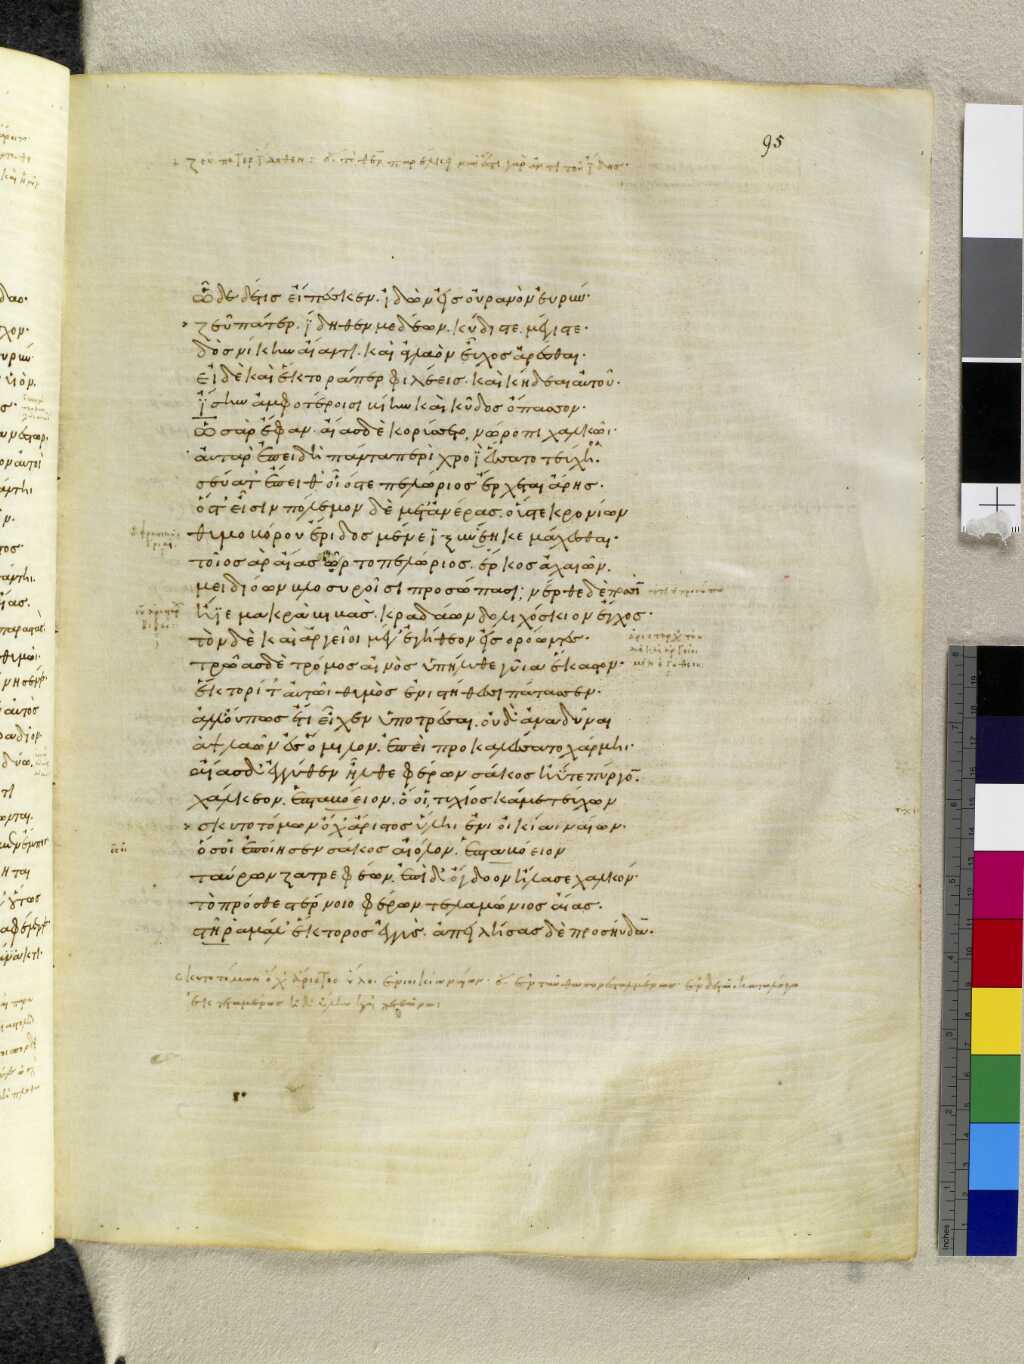 95
ὧδε δέ τις εἴπεσκεν. ἰδὼν εἰς οὐρανὸν εὐρύν·
ζεῦ πάτερ. ἴδηθεν μεδέων. κύδιστε. μέγιστε·
δὸς νίκην αἴαντι. καὶ ἀγλαὸν εὖχος ἀρέσθαι·
εἰ δὲ καὶ ἕκτορά περ φιλέεις. καὶ κήδεαι αὐτοῦ·
ἴσην ἀμφοτέροισι βίην καὶ κῦδος ὄπασσον·
ὣς ἄρ ἔφαν. αἴας δὲ κορύσσετο νώροπι χαλκῶι·
αὐτὰρ ἐπειδὴ πάντα περὶ χροῒ ἕσσατο τεύχη·
σεύατ' ἔπειθ' οἷός τε πελώριος ἔρχεται ἄρης·
ὅς τ' εἶσιν πόλεμον δὲ μετ' ἀνέρας. οὕς τε κρονίων
θυμοβόρου ἔριδος μένεϊ ξυνέηκε μάχεσθαι·
τοῖος ἄρ αἴας ὦρτο πελώριος. ἕρκος ἀχαιῶν.
μειδιόων βλοσυροῖσι προσώπασι· νέρθε δὲ ποσσὶν
ἤϊε μακρὰ βιβάς. κραδάων δολιχόσκιον ἔγχος·
τὸν δὲ καὶ ἀργεῖοι μὲν ἐγήθεον εἰσορόωντες·
τρῶας δὲ τρόμος αἰνὸς ὑπήλυθε γυῖα ἕκαστον·
ἕκτορί τ' αὐτῶι θυμὸς ἐνὶ στήθεσσι πάτασσεν·
ἀλλ' οὔπως ἔτι εἶχεν ὑποτρέσαι. οὐδ' ἀναδῦναι
ἂψ λαῶν ἐς ὅμιλον. ἐπεὶ προκαλέσσατο χάρμηι·
αἴας δ' ἐγγύθεν ἦλθε φέρων σάκος ἠΰτε πύργον·
χάλκεον. ἑπταβόειον. ὅ οἱ τυχίος κάμε τεύχων
σκυτοτόμων ὄχ' ἄριστος ὕληι ἔνι οἰκία ναίων·
ὅς οἱ ἐποίησεν σάκος αἰόλον. ἑπταβόειον
ταύρων ζατρεφέων. ἐπὶ δ' ὄγδοον ἤλασε χαλκόν·
τὸ πρόσθε στέρνοιο φέρων τελαμώνιος αἴας·
στῆ ῥα μάλ' ἕκτορος ἐγγύς. ἀπειλήσας δὲ προσηύδα·